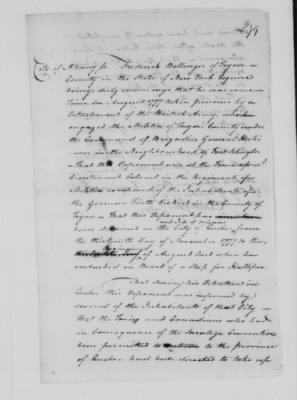 City of Albany ss. Frederick Bellinger of Tryon
County in the State of New York Esquire
being duly sworn says that he was some
Time in August 1777 taken prisoner by a
Detachment of the British Army, which
engaged the Militia of Tryon County under
the Command of Brigadier General Herki-
mer in the Neighbourhood of Fort Schuyler
- That the Deponent was at the Time aforesd.
Lieutenant Colonel in the Regiment of
Militia of the Inhabitants of
the German Flatts District in the County of
Tryon - That this Deponent has
been detained in the City of Quebec from
the thirteenth Day of November 1777 to the
beginning of August last when he
embarked on Board of a Ship for Hallifax
That during his Detention in
Quebec this Deponent was informed by
several of the Inhabitants of that City -
that the Tories and Canadians who had
in Consequence of the Saratoga Convention
been permitted to return to the province
of Quebec had been directed to take up